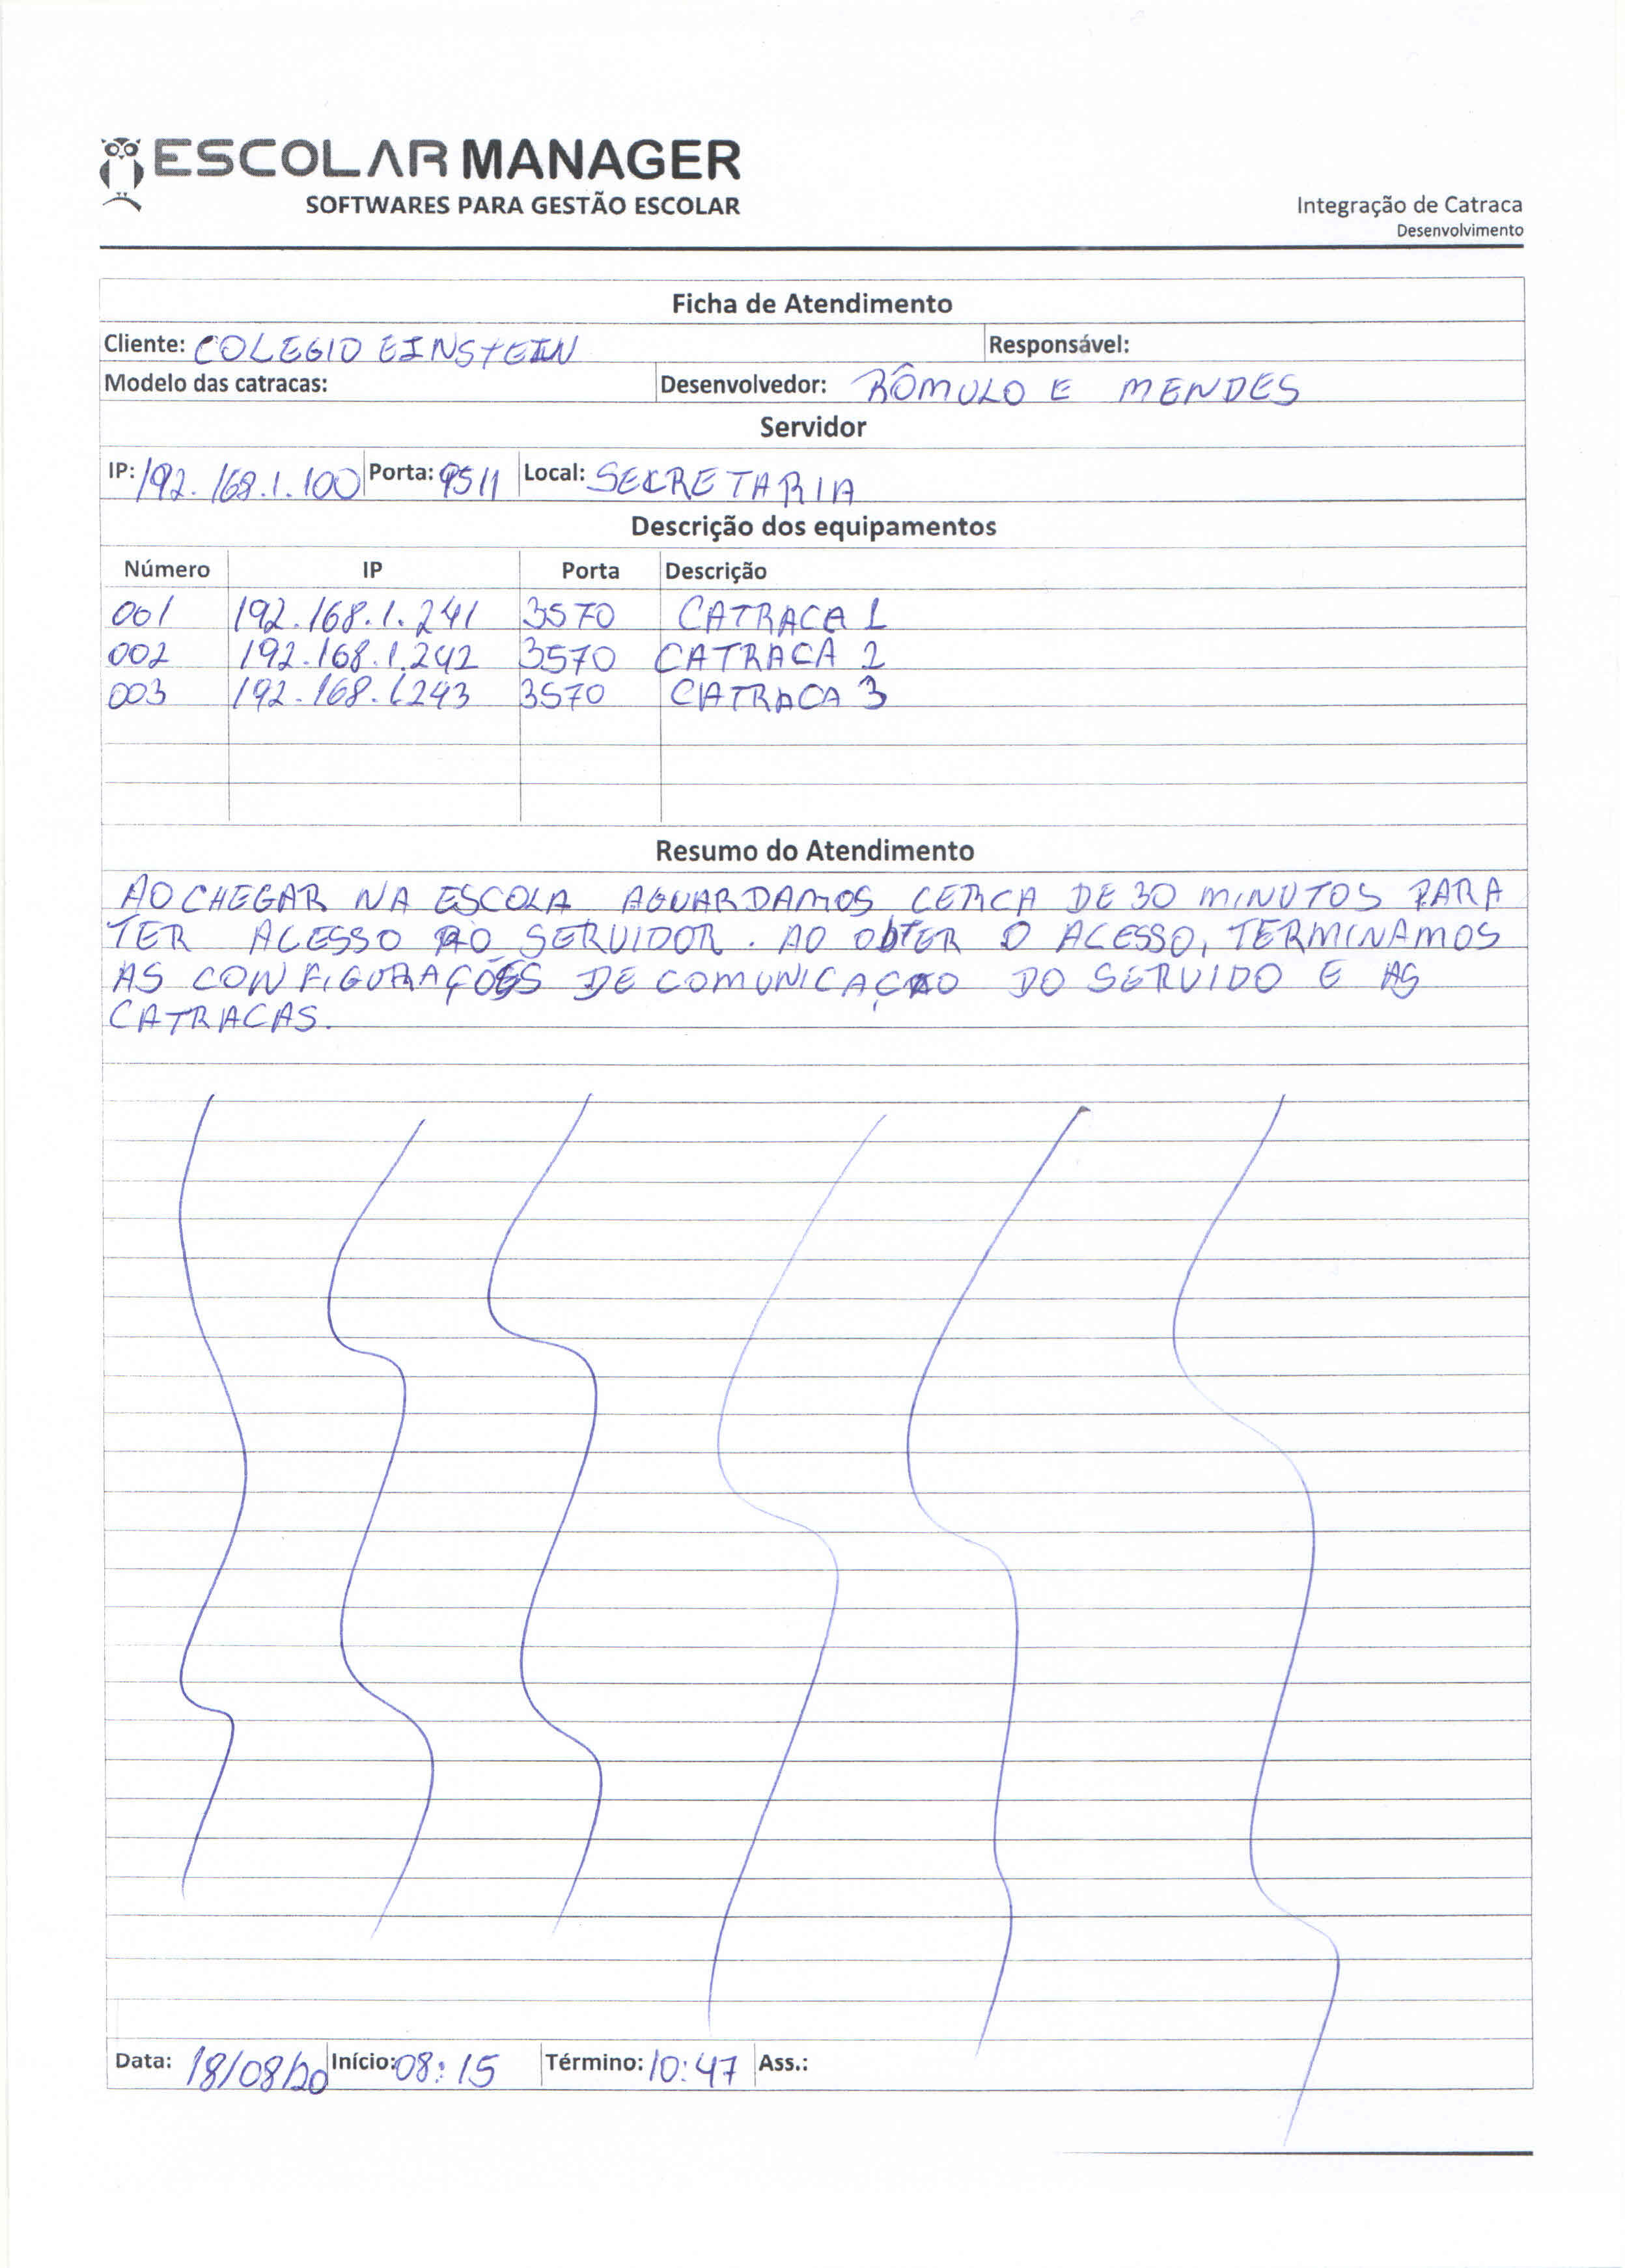 ESCOLAR MANAGER
SOFTWARES PARA GESTÃO ESCOLAR
Integração de Catraca
Desenvolvimento
Ficha de Atendimento
Cliente: COLEGIO EINSTEIN Responsável:
Modelo das catracas: Desenvolvedor: RÔMULO E MENDES
Servidor
IP: 192.168.1.100 Porta: 9511 Local: SECRETARIA
Descrição dos equipamentos
Número IP Porta Descrição
001 192.168.1.241 3570 CATRACA 1
002 192.168.1.242 3570 CATRACA 2
003 192.168.1243 3570 CATRACA 3
Resumo do Atendimento
AO CHEGAR NA ESCOLA AGUARDAMOS CERCA DE 30 MINUTOS PARA
TER ACESSO AO SERVIDOR. AO OBTER O ACESSO, TERMINAMOS
AS CONFIGURAÇÕES DE COMUNICAÇÃO DO SERVIDO E AS
CATRACAS.
Data: 18/08/20 Início: 08:15 Término: 10:47 Ass.: